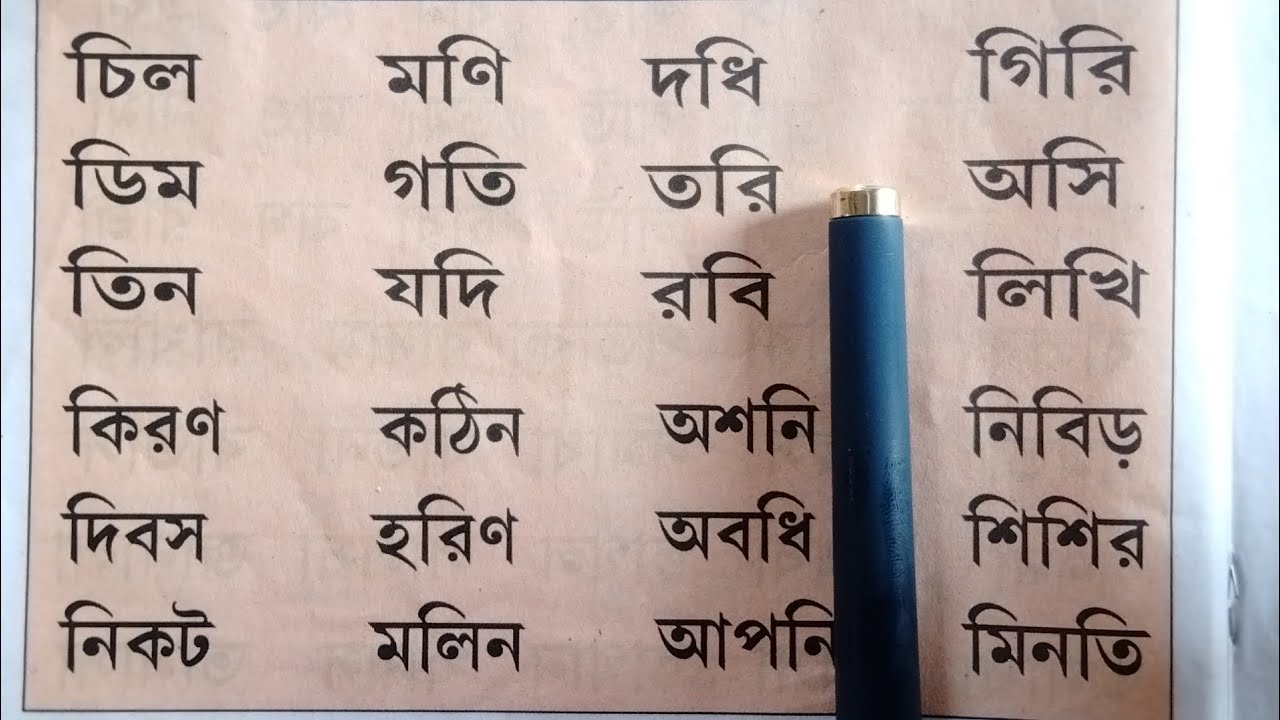 চিল মণি দধি গিরি
ডিম গতি তরি অসি
তিন যদি রবি লিখি
কিরণ কঠিন অশনি নিবিড়
দিবস হরিণ অবধি শিশির
নিকট মলিন আপনি মিনতি